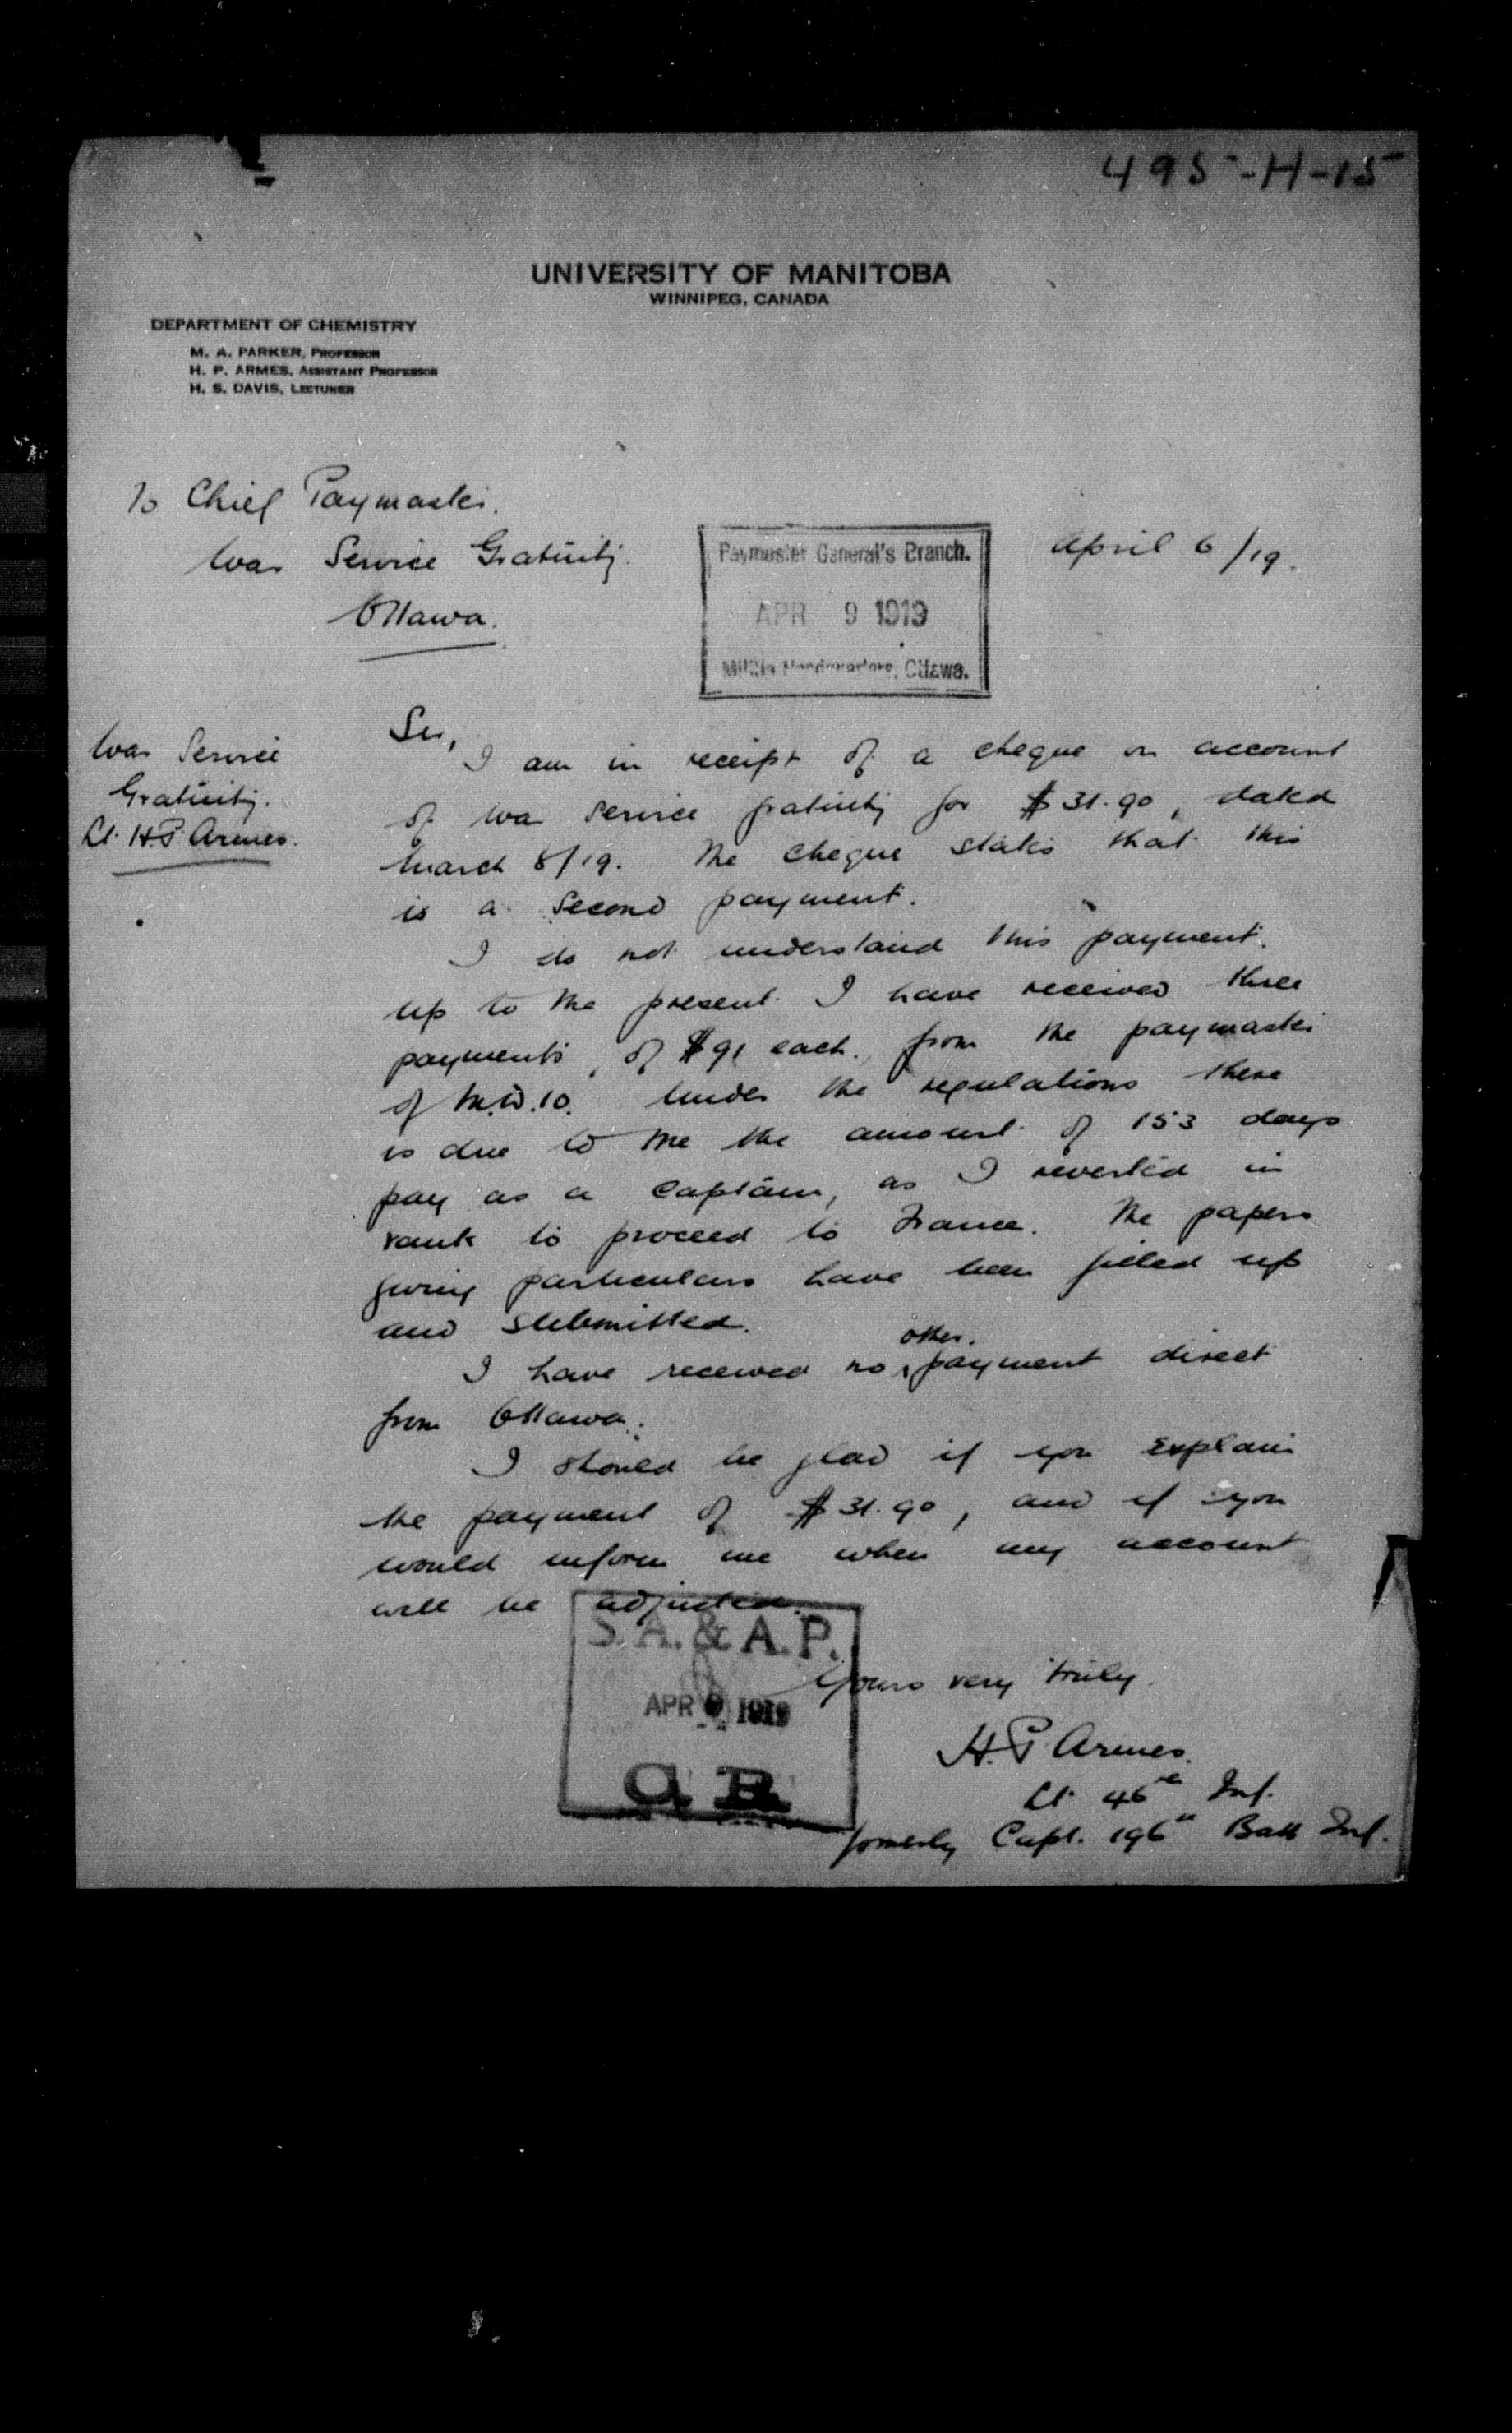 495-H-15
UNIVERSITY OF MANITOBA
WINNIPEG, CANADA
DEPARTMENT OF CHEMISTRY
M. A. PARKER, PROFESSOR
H. P. ARMES, ASSISTANT PROFESSOR
H. S. DAVIS, LECTURER
To Chief Paymaster.
War Service Gratuity.
Ottawa.
April 6/19.
Paymaster General's Branch.
APR 9 1919
Militia Headquarters, Ottawa.
War Service
Gratuity.
Lt. H.P. Armes.
Sir,
I am in receipt of a cheque on account
of War Service gratuity for $31.90, dated
March 8/19. The cheque states that this
is a second payment.
I do not understand this payment.
Up to the present I have received three
payments, of $91 each, from the paymaster
of M.D.10. Under the regulations there
is due to me the amount of 153 days
pay as a captain, as I reverted in
rank to proceed to France. The papers
giving particulars have been filled up
and submitted.
I have received no other payment direct
from Ottawa.
I should be glad if you explain
the payment of $31.90, and if you
would inform me when my account
will be adjusted.
S. A. & A. P.
APR 9 1919
Yours very truly
H. P. Armes.
Lt. 46th Inf.
formerly Capt. 196th Batt Inf.